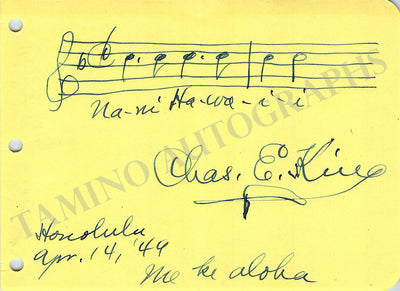 Na-ni Ha-wa-i i
Chas. E. King
Honolulu
Apr. 14, '44
Me ke aloha
TAMINO AUTOGRAPHS